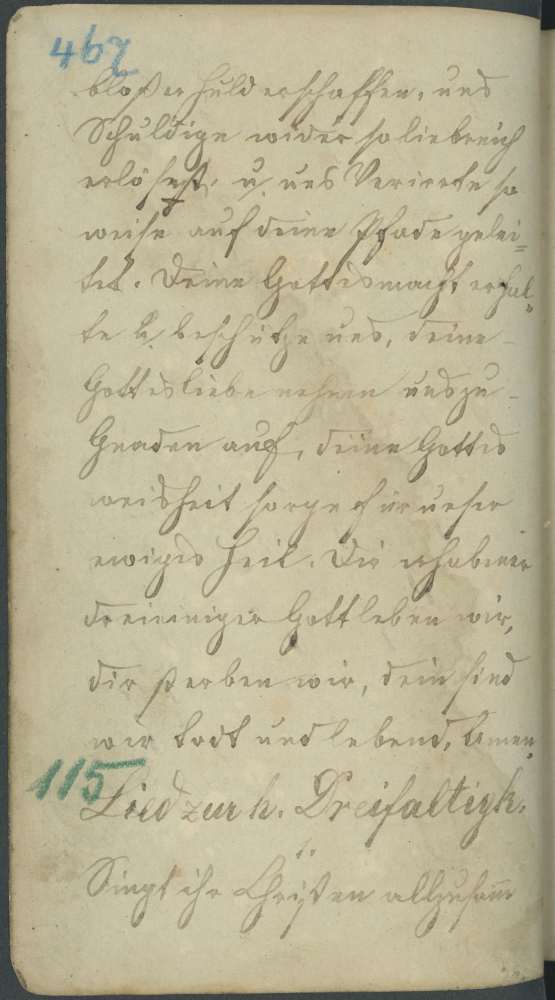 467
bloßer Huld erschaffen, uns
Schuldige wider so liebreich
erlösest, u. uns Verirrte so
weise auf deine Pfade gelei=
tet. Deine Gottesmacht erhal=
te u. beschütze uns, deine
Gottesliebe nehme uns zu
Gnaden auf, deine Gottes
weisheit sorge für unser
ewiges Heil. Dir erhabener
dreieiniger Gott leben wir,
dir sterben wir, dein sind
wir todt und lebend, Amen,
115
Lied zur h. Dreifaltigk.
Singt ihr Christen allzusam̅